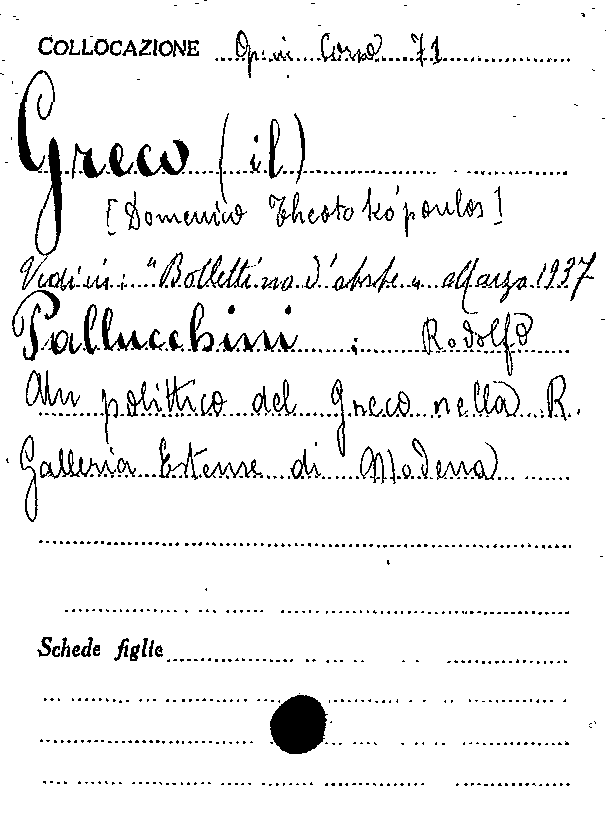 COLLOCAZIONE Op. in Corso 71
Greco (il)
[Domenico Theotokópoulos]
Vedi in: "Bollettino d'arte" Marzo 1937
Pallucchini : Rodolfo
Un polittico del Greco nella R.
Galleria Estense di Modena
Schede figlie